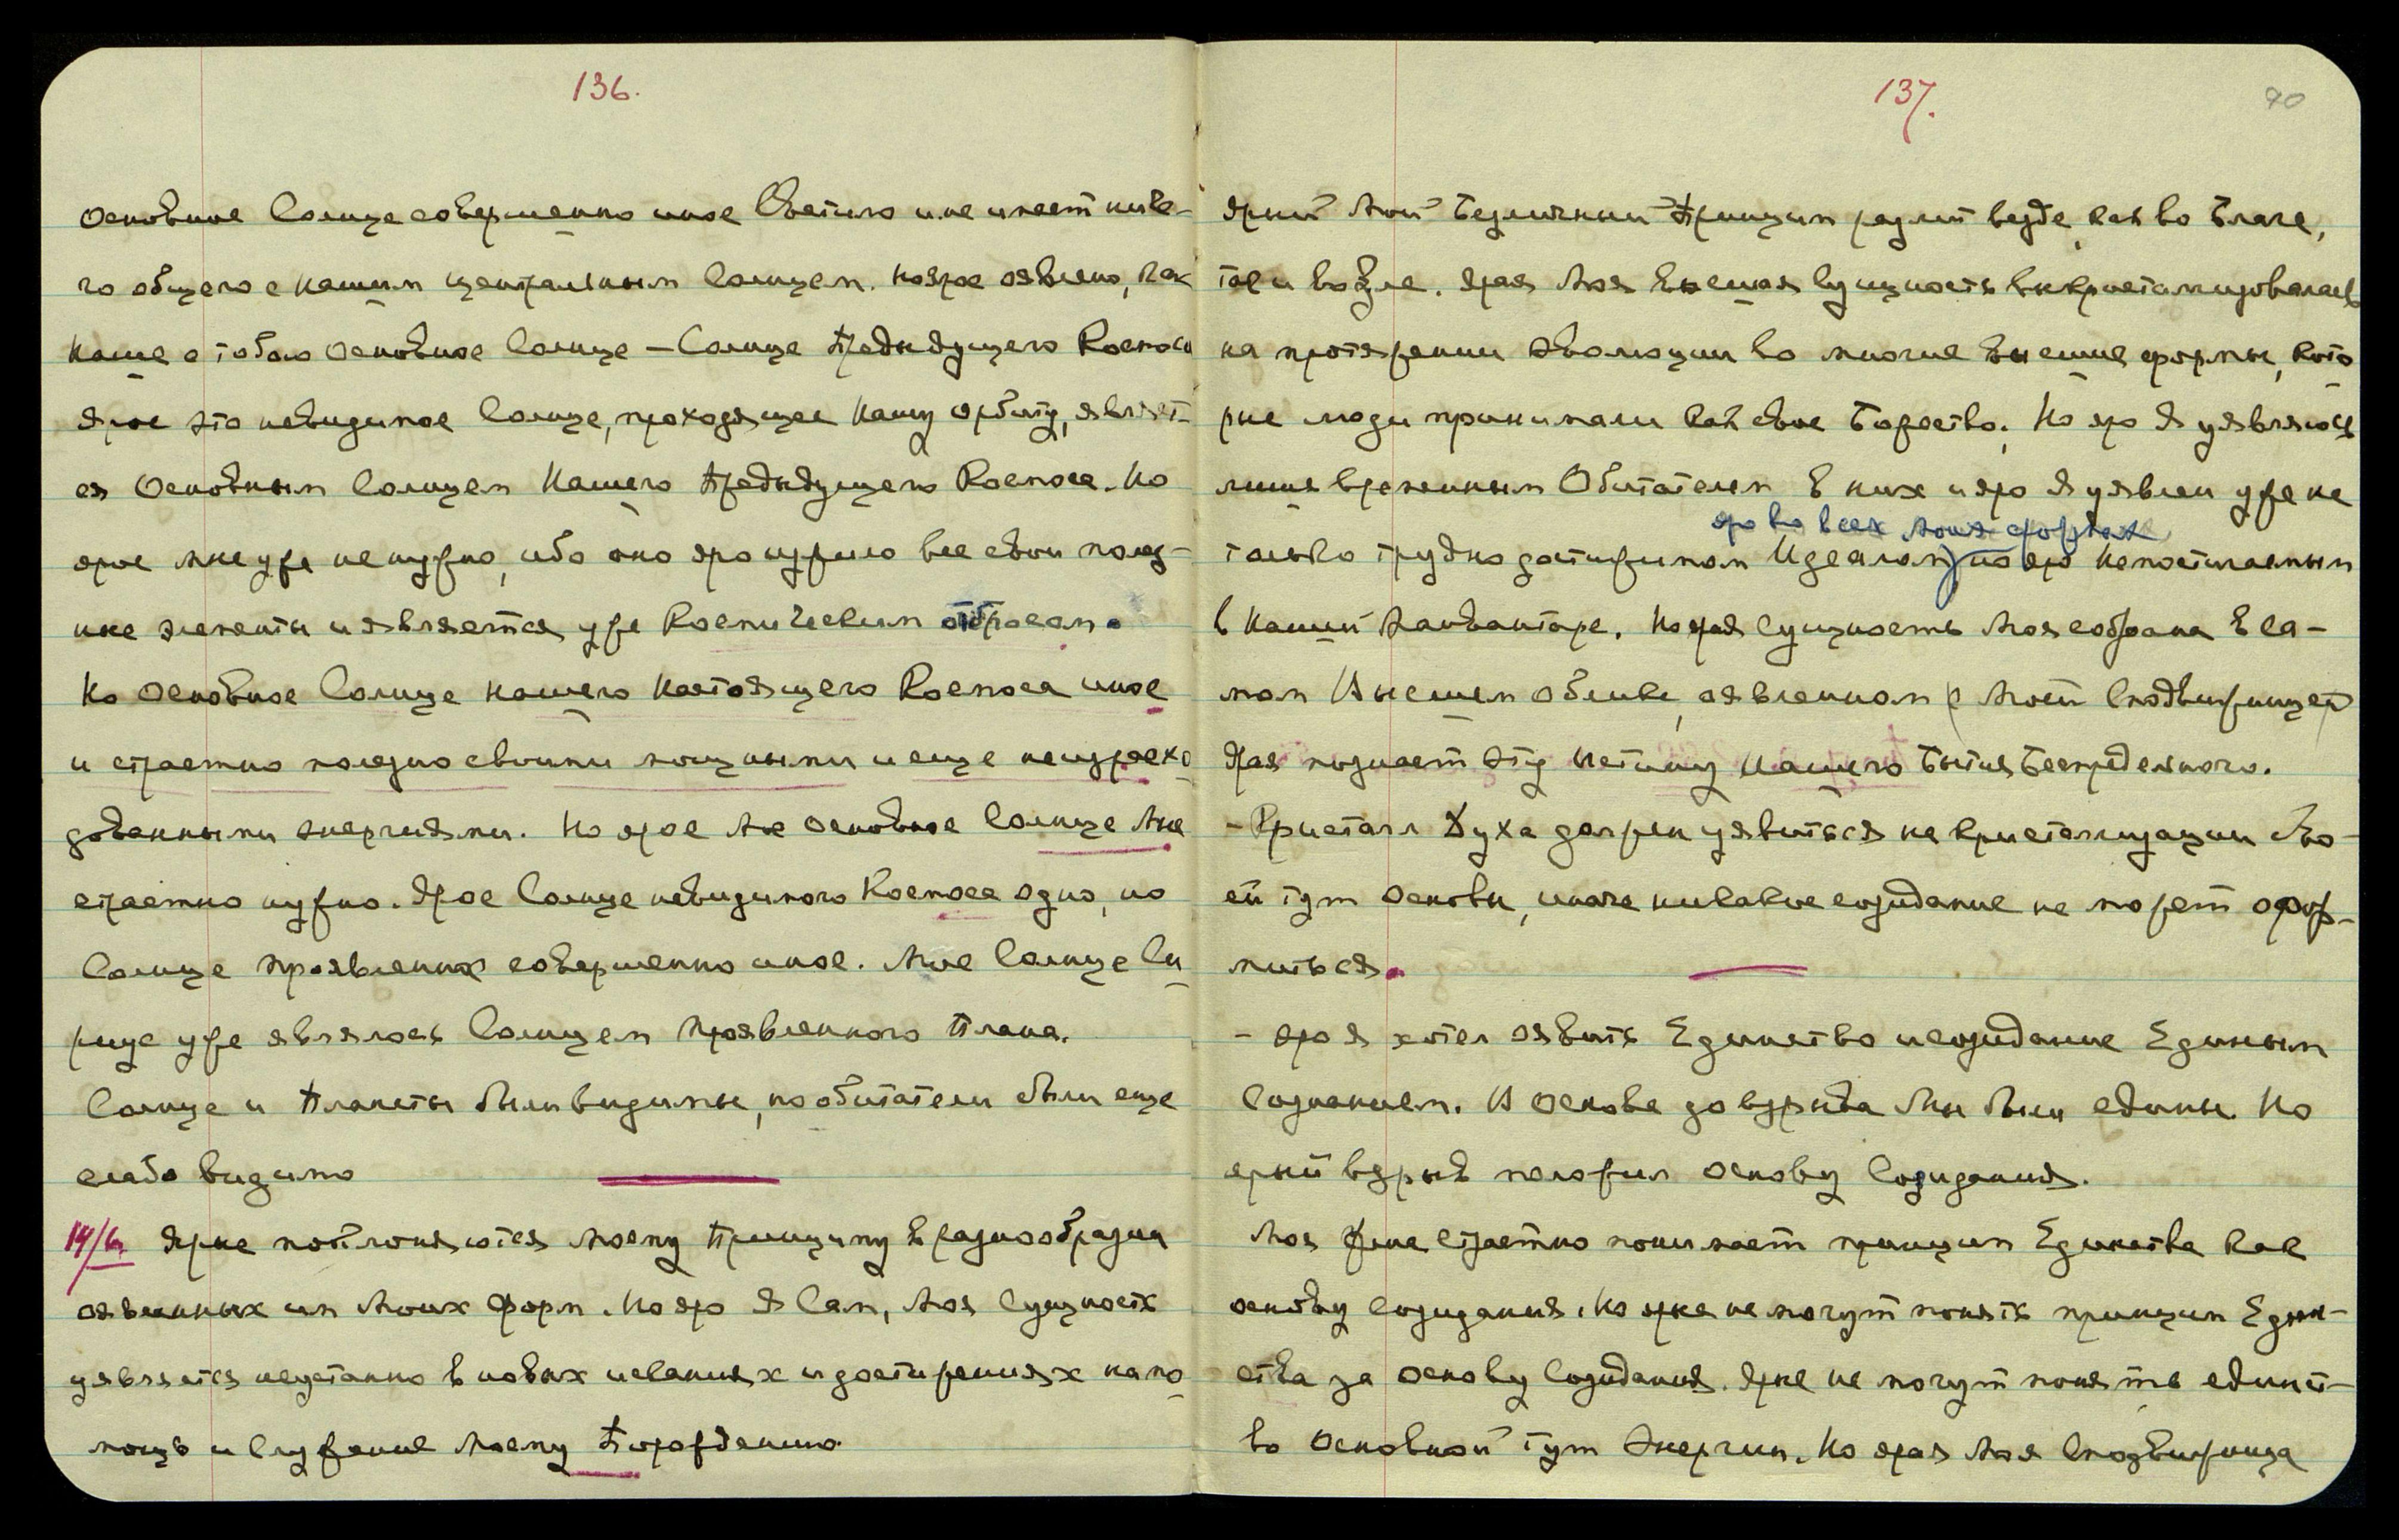 136.
Основное Солнце совершенно иное Светило и не имеет ниче-
го общего с нашим центральным Солнцем. Но ярое оявлено, как
Наше с тобою Основное Солнце – Солнце Предыдущего Космоса
Ярое это невидимое Солнце, проходящее Нашу орбиту, являет-
ся Основным Солнцем Нашего Предыдущего Космоса. Но
ярое мне уже не нужно, ибо оно яро изжило все свои полез-
ные элементы и является уже Космическим отбросом.
Но Основное Солнце Нашего Настоящего Космоса иное
и страстно полезно своими мощными и еще неизрасхо
дованными энергиями. Но ярое Мое Основное Солнце Мне
страстно нужно. Ярое Солнце невидимого Космоса одно, но
Солнце Проявленных совершенно иное. Мое Солнце Си
риус уже являлось Солнцем Проявленного Плана.
Солнце и Планеты были видимы, но обитатели были еще
слабо видимо
14/6. Ярые поклоняются Моему Принципу в разнообразии
оявленных им Моих Форм. Но яро Я Сам, Моя Сущность
уявляется неустанно в новых исканиях и достижениях на по
мощь и Служение Моему Порождению
137.
90
Ярый Мой Безличный Принцип разлит везде, как во Благе,
так и во Зле. Ярая Моя Высшая Сущность выкристаллизовалась
на протяжении Эволюции во многие Высшие формы, кото
рые люди принимали как свое Божество. Но яро Я уявляюсь
лишь временным Обитателем в них и яро Я уявлен уже не
яро во всех Моих формах
только трудно достижимом Идеалом, но яро Непостигаемым
в Нашей Манвантаре. Но ярая Сущность Моя собрана в са-
мом Высшем облике, оявленном (с Моей Сподвижницей)
Ярая познает эту Истину Нашего Бытия Беспредельного.
– Кристалл Духа должен уявиться на кристаллизации Мо-
ей тут Основы, иначе никакое созидание не может офор-
миться.
– Яро я хотел оявить Единство и созидание Единым
Сознанием. В Основе до взрыва Мы были едины. Но
ярый взрыв положил Основу Созидания.
Моя Жена страстно понимает принцип Единства как
основу созидания. Но ярые не могут понять принцип Един-
ства за Основу Созидания. Ярые не могут понять единст-
во Основной тут Энергии. Но ярая Моя Сподвижница